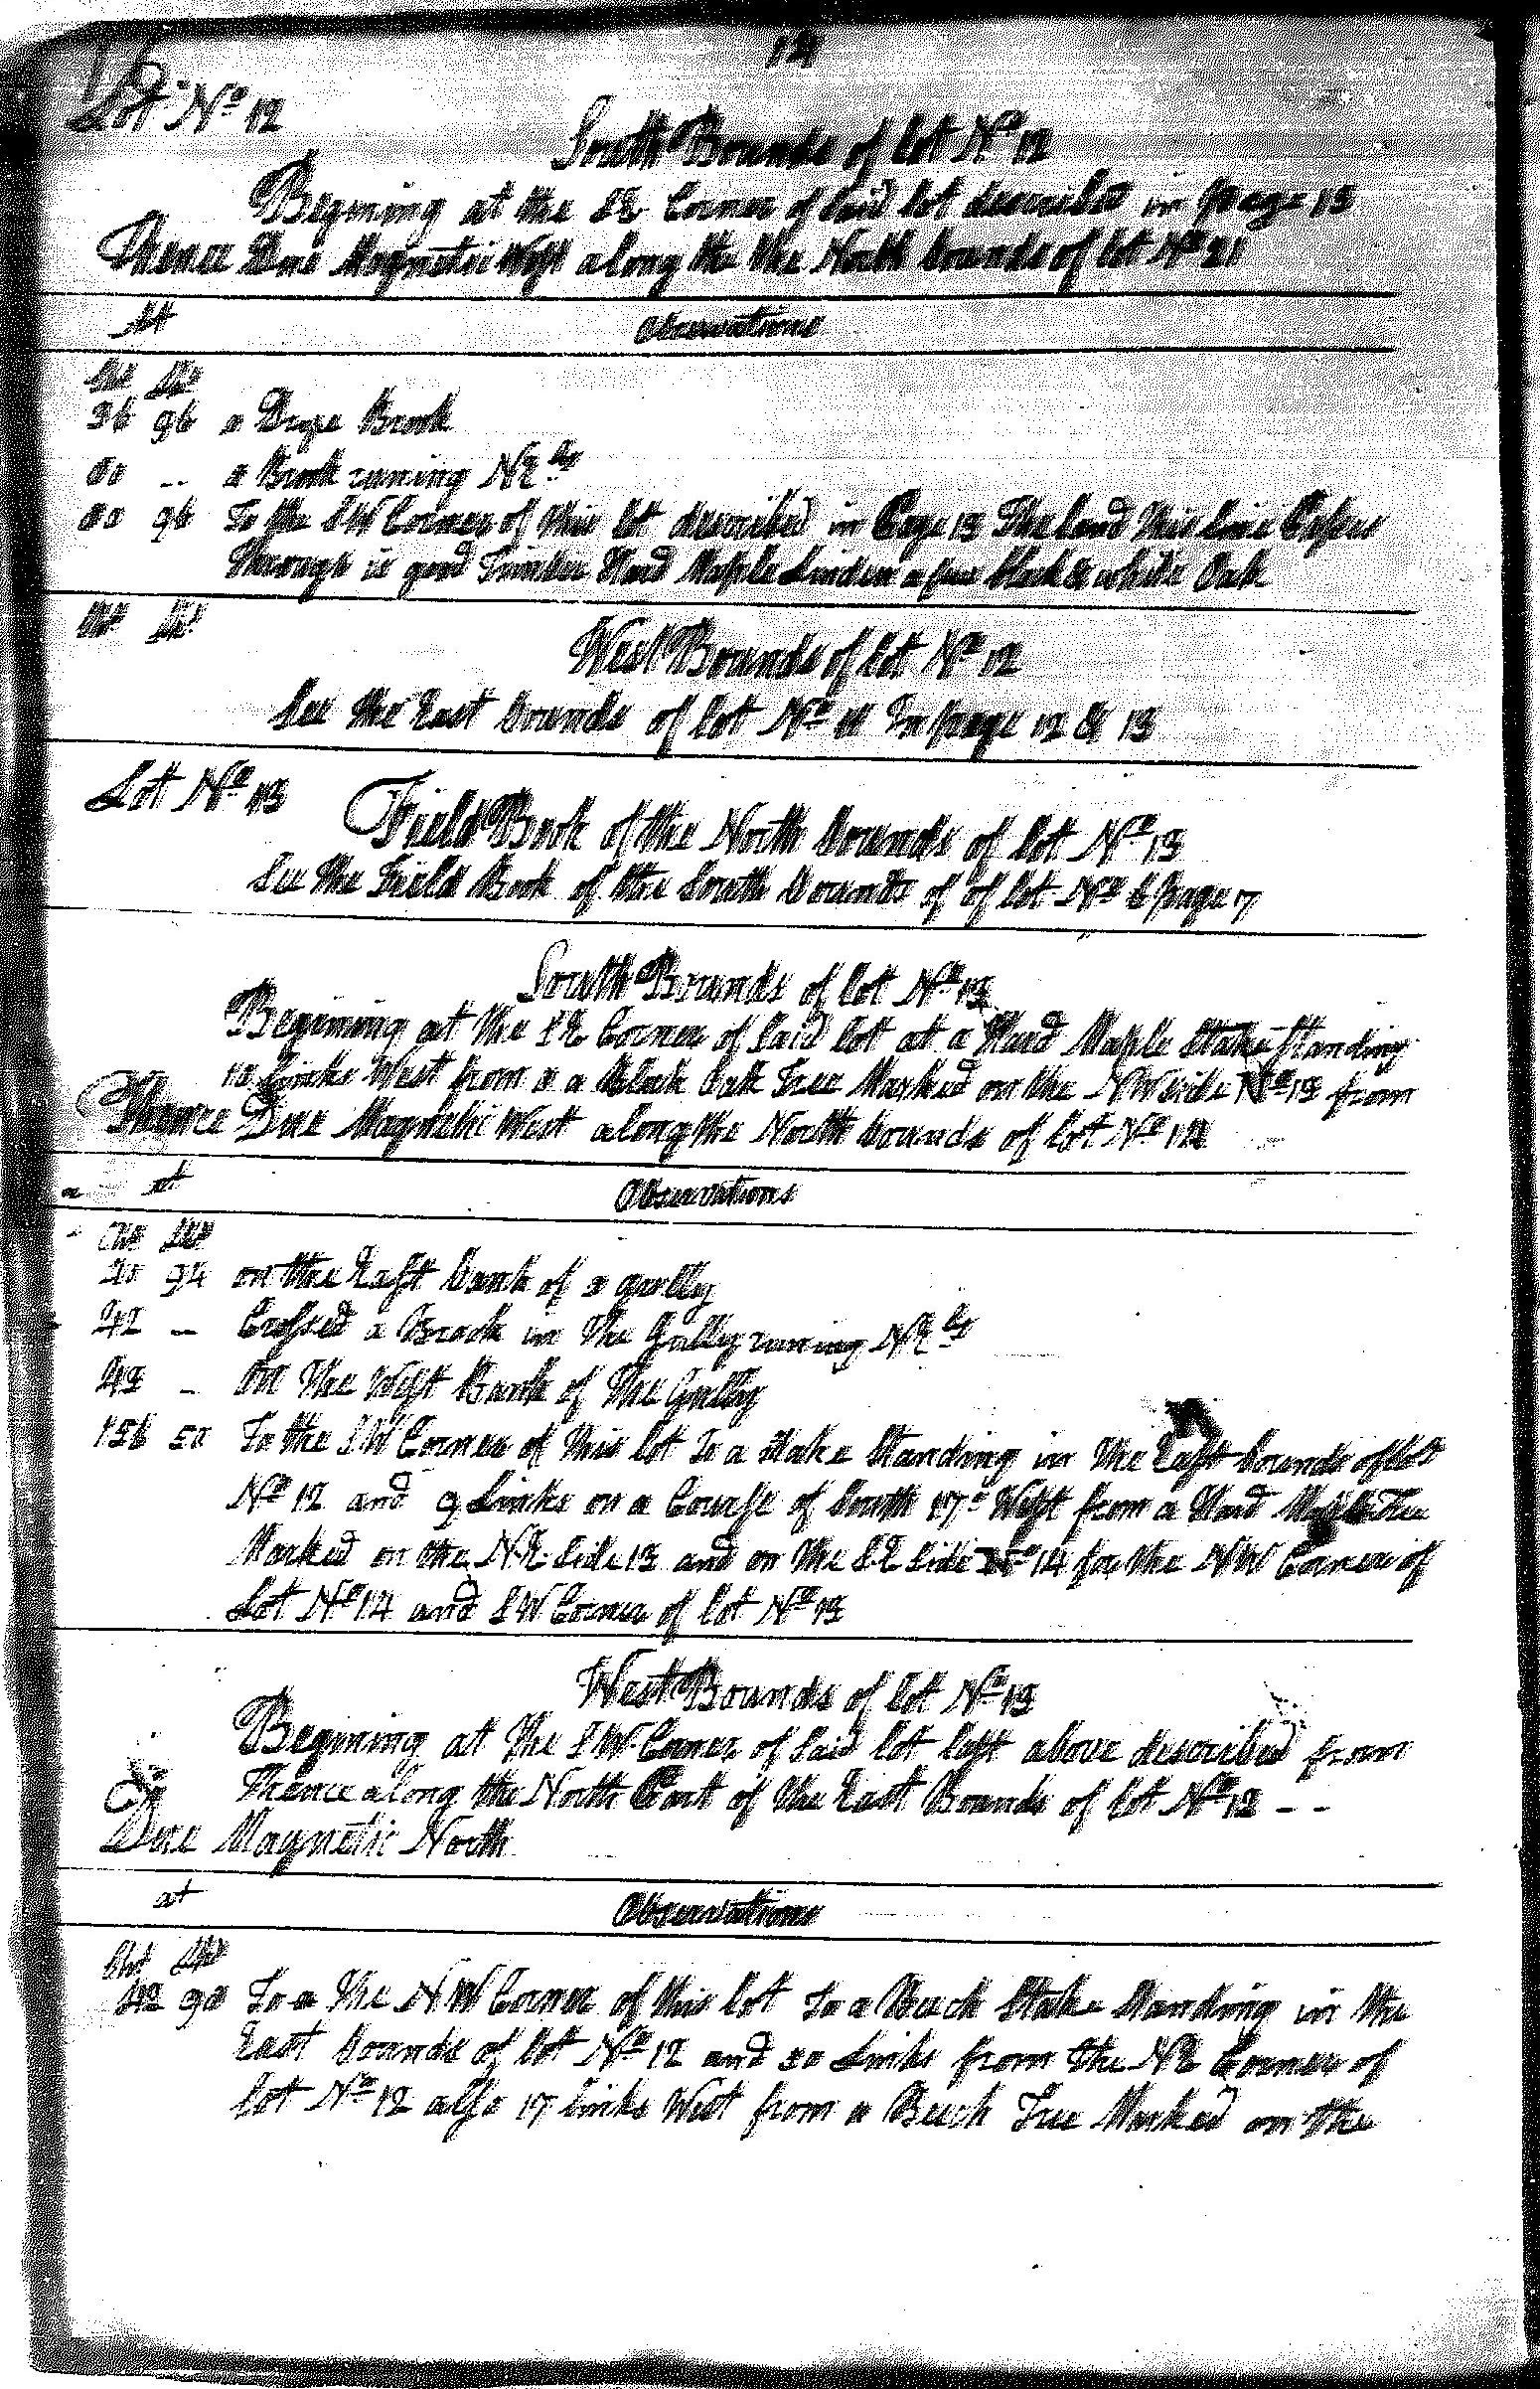 14
Lot No 12
South Bounds of lot No 12
Begining at the SE Corner of Said lot described in page 13
Thence Due Magnetic West along the the North bounds of lot No 21
At Observations
Chs Lks
36 96 a Drye Brook
60 -- a Brook runing NEly
80 96 To the SW Corner of this lot described in Page 13 The land this line Passes
through is good Timber Hard Maple Linden a few black & white Oak
Chs Lks
West Bounds of lot No 12
See the East bounds of lot No 11 In page 12 & 13
Lot No 13
Field Book of the North bounds of lot No 13
See the Field Book of the South bounds of of lot No 6 page 7
South Bounds of lot No 13
Begining at the SE Corner of Said lot at a Hard Maple Stake Standing
10 links West from a a Black Oak Tree Marked on the NW side No 13 from
Thence Due Magnetic West along the North bounds of lot No 14
at Observations
Chs Lks
20 94 on the East bank of a gully
42 -- Crossed a Brook in the Gully runing NEly
43 -- on the West Bank of the Gully
136 50 To the SW Corner of this lot To a Stake Standing in the East bounds of lot
No 12 and 9 Links on a Course of South 17° West from a Hard Maple Tree
Marked on the NE Side 13 and on the SE Side No 14 for the NW Corner of
Lot No 14 and SW Corner of lot No 13
West Bounds of lot No 13
Begining at the SW Corner of Said lot last above described from
Thence along the North Part of the East Bounds of lot No 12 --
Due Magnetic North
at Observations
Chs Lks
42 90 To a the NW Corner of this lot To a Beech Stake Standing in the
East bounds of lot No 12 and 50 Links from the NE Corner of
lot No 12 also 17 links West from a Beech Tree Marked on the